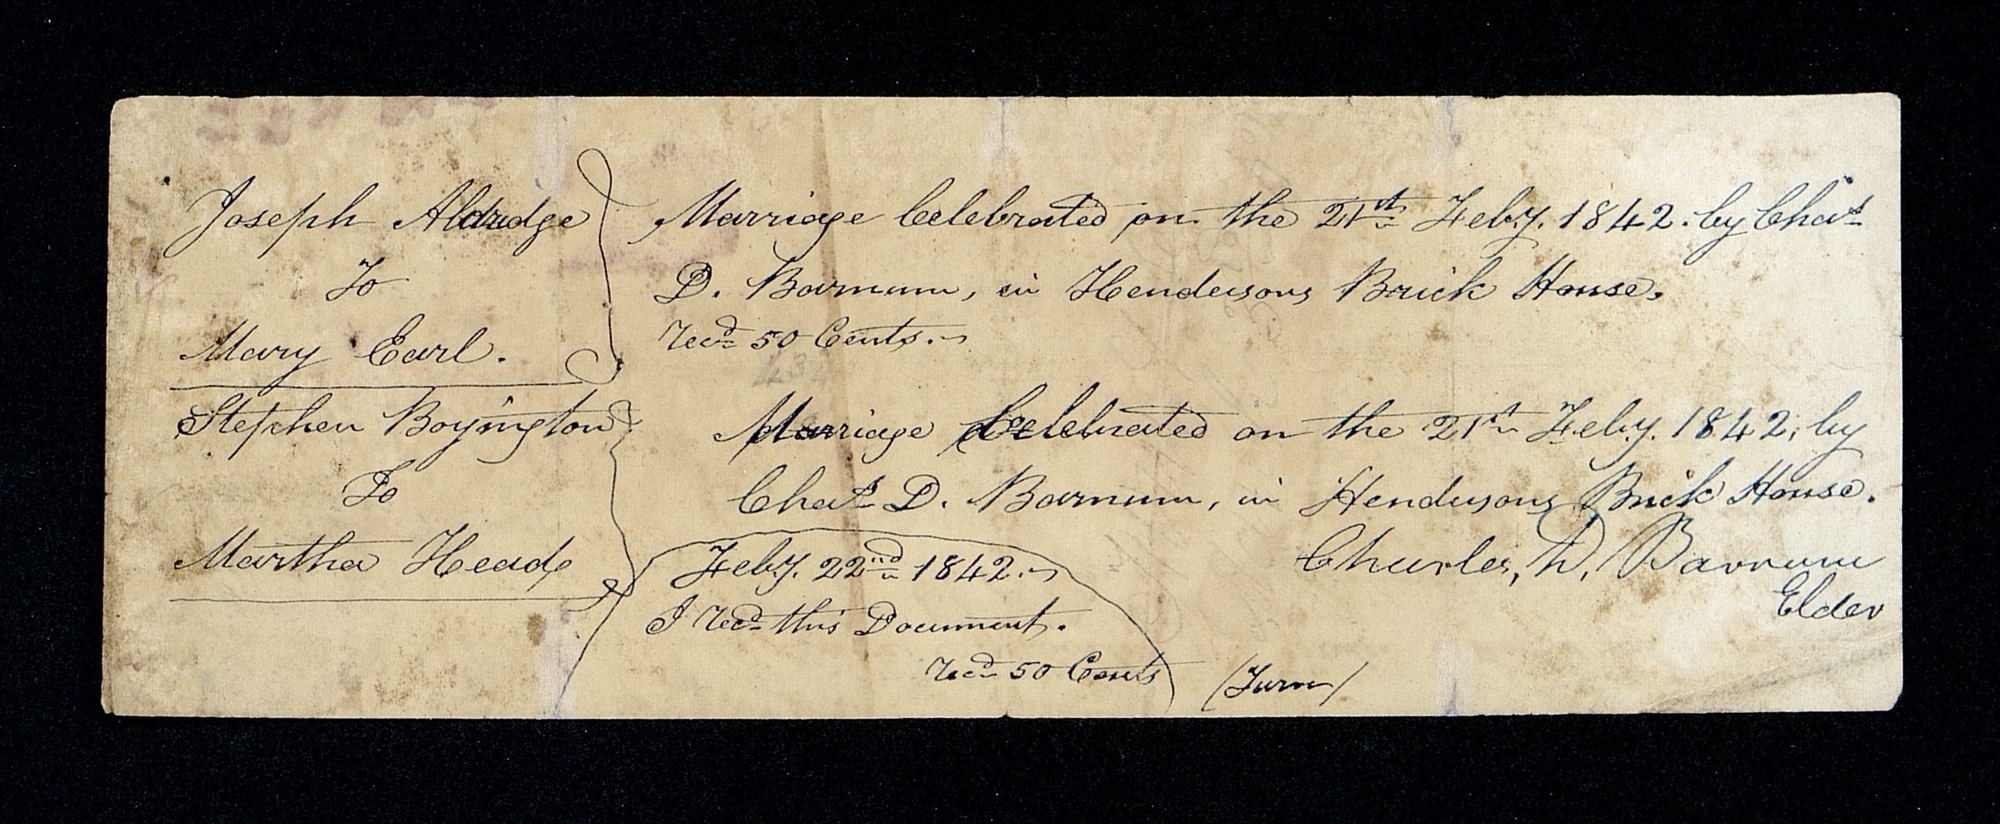 Joseph Aldridge
To
Mary Earl.
Marriage Celebrated on the 21st Feby. 1842. by Chas
D. Barnum, in Hendersons Brick House.
Recd 50 Cents.
434
Stephen Boyington
To
Martha Heady
Marriage Celebrated on the 21st Feby. 1842, by
Chas D. Barnum, in Hendersons Brick House.
Charles, D, Barnum
Elder
Feby. 22nd 1842.
I Recd this Document.
Recd 50 Cents
(Turn)